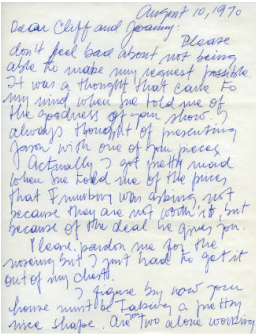 August 10, 1970
Dear Cliff and Joanny:
Please
don't feel bad about not being
able to make my request possible
It was a thought that came to
my mind when she told me of
the goodness of your show. I
always thought of presenting
Jason with one of your pieces
Actually I got pretty mad
when she told me of the prices
that was asking not
because they are not worth it, but
because of the deal he gives you.
Please pardon me for the
nosying but I just had to get it
out of my chest.
I figure by now your
house must be taking a pretty
nice shape. Are two alone working